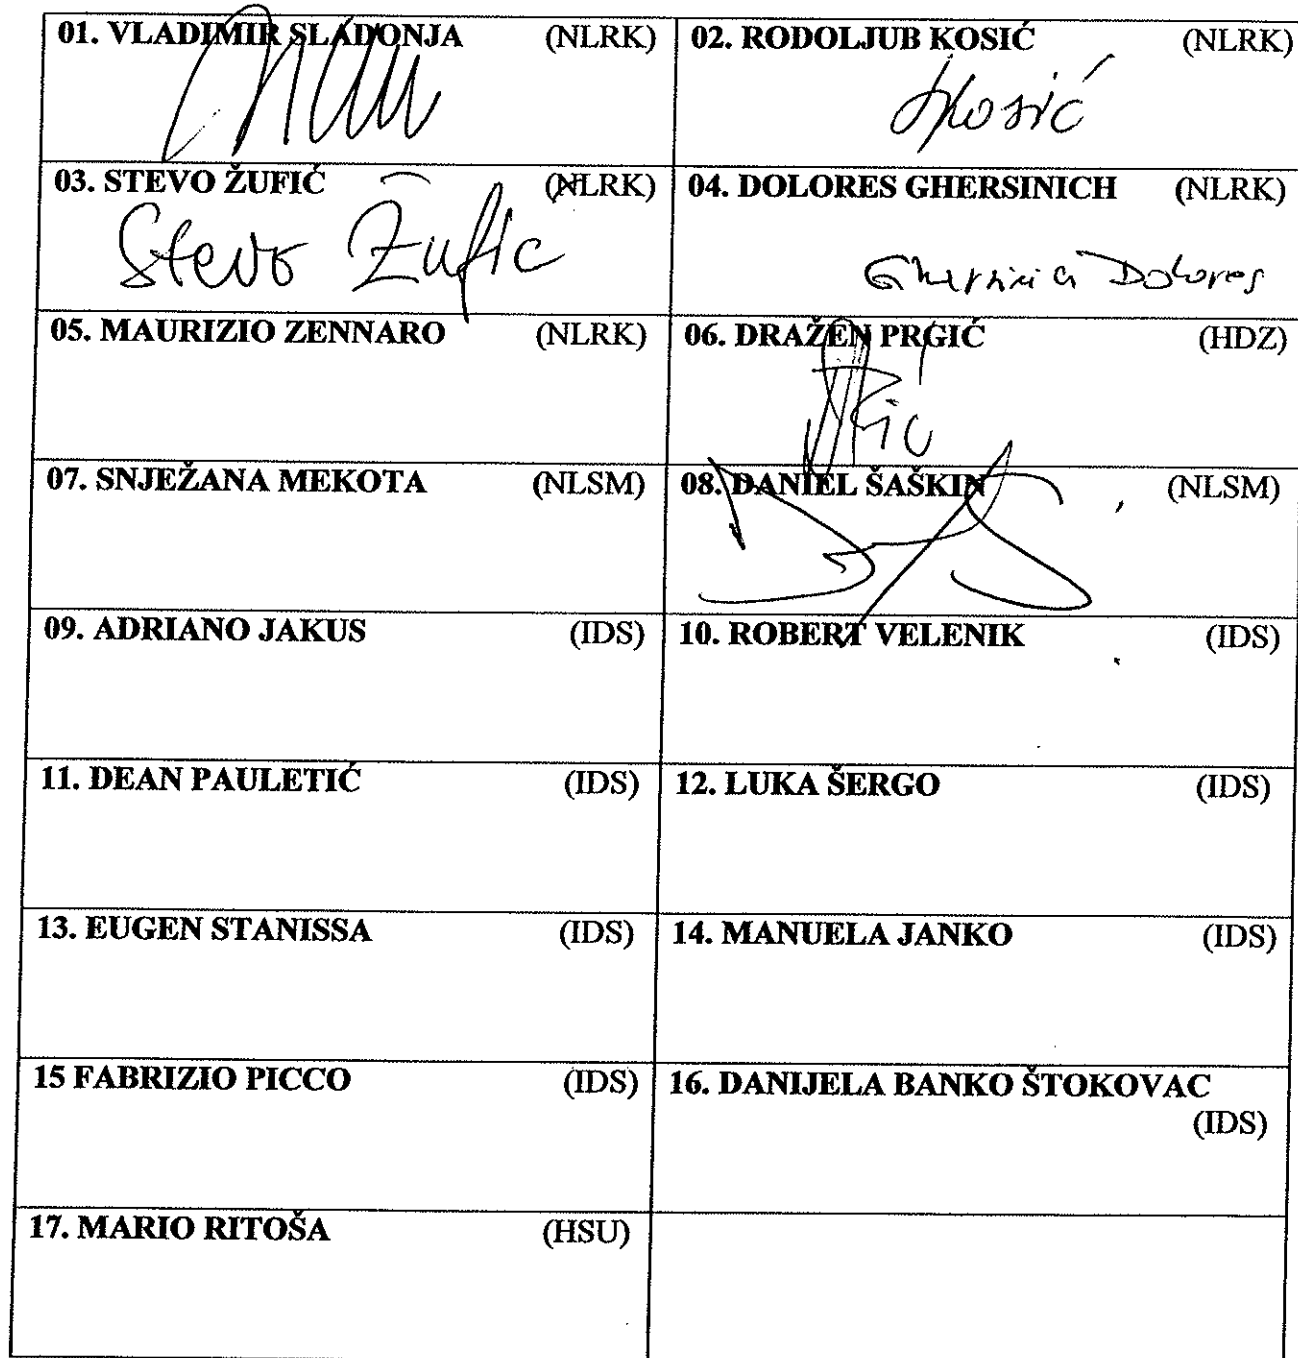 01. VLADIMIR SLADONJA (NLRK)
02. RODOLJUB KOSIĆ (NLRK)
Kosić
03. STEVO ŽUFIĆ (NLRK)
Stevo Žufić
04. DOLORES GHERSINICH (NLRK)
Dolores
05. MAURIZIO ZENNARO (NLRK)
06. DRAŽEN PRGIĆ (HDZ)
07. SNJEŽANA MEKOTA (NLSM)
08. DANIEL ŠAŠKIN (NLSM)
09. ADRIANO JAKUS (IDS)
10. ROBERT VELENIK (IDS)
11. DEAN PAULETIĆ (IDS)
12. LUKA ŠERGO (IDS)
13. EUGEN STANISSA (IDS)
14. MANUELA JANKO (IDS)
15 FABRIZIO PICCO (IDS)
16. DANIJELA BANKO ŠTOKOVAC
(IDS)
17. MARIO RITOŠA (HSU)